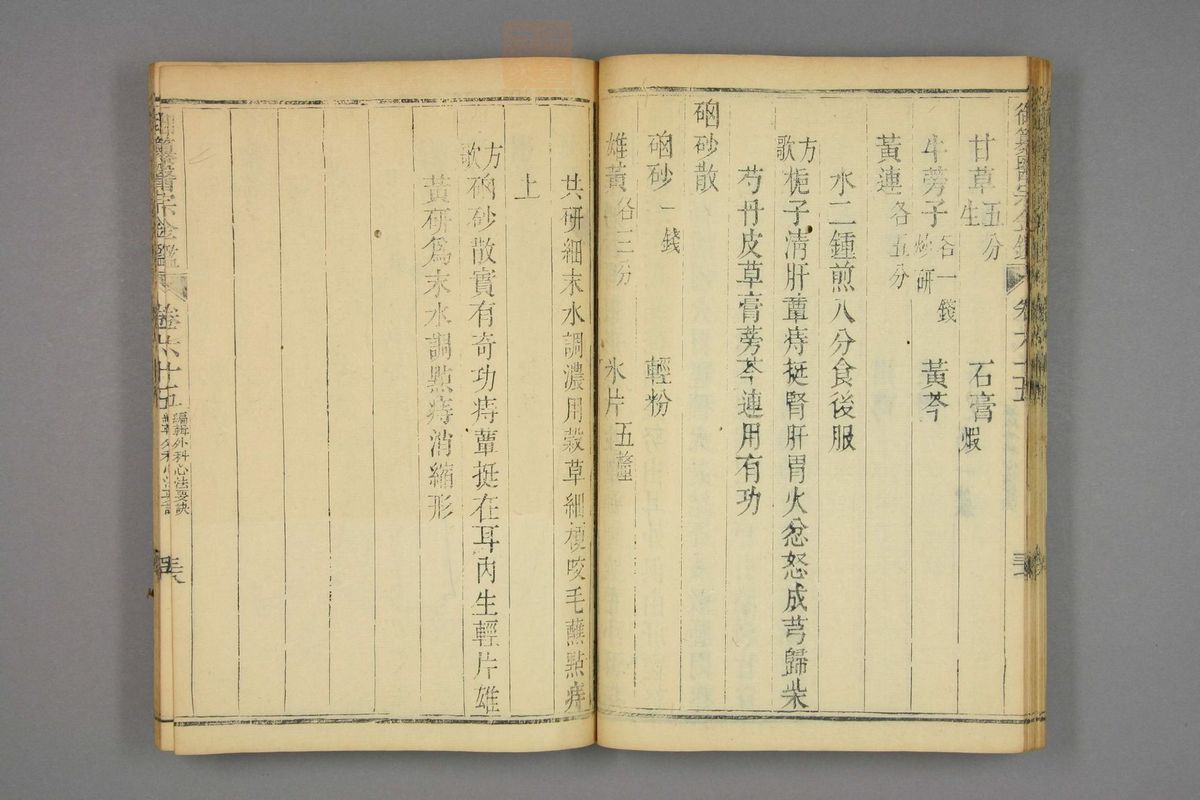 甘草生五分 石膏煅
牛蒡子炒研各一錢 黃芩
黃連各五分
水二鍾煎八分食後服
方歌 梔子清肝蕈痔挺腎肝胃火忿怒成芎歸柴
芍丹皮草膏蒡芩連用有功
硇砂散
硇砂一錢 輕粉
雄黃各三分 氷片五釐
共研細末水調濃用穀草細梗咬毛蘸點痔
上
方歌 硇砂散實有奇功痔蕈挺在耳內生輕片雄
黃研爲末水調點痔消縮形
御纂醫宗金鑑 卷六十五 編輯外科心法要訣